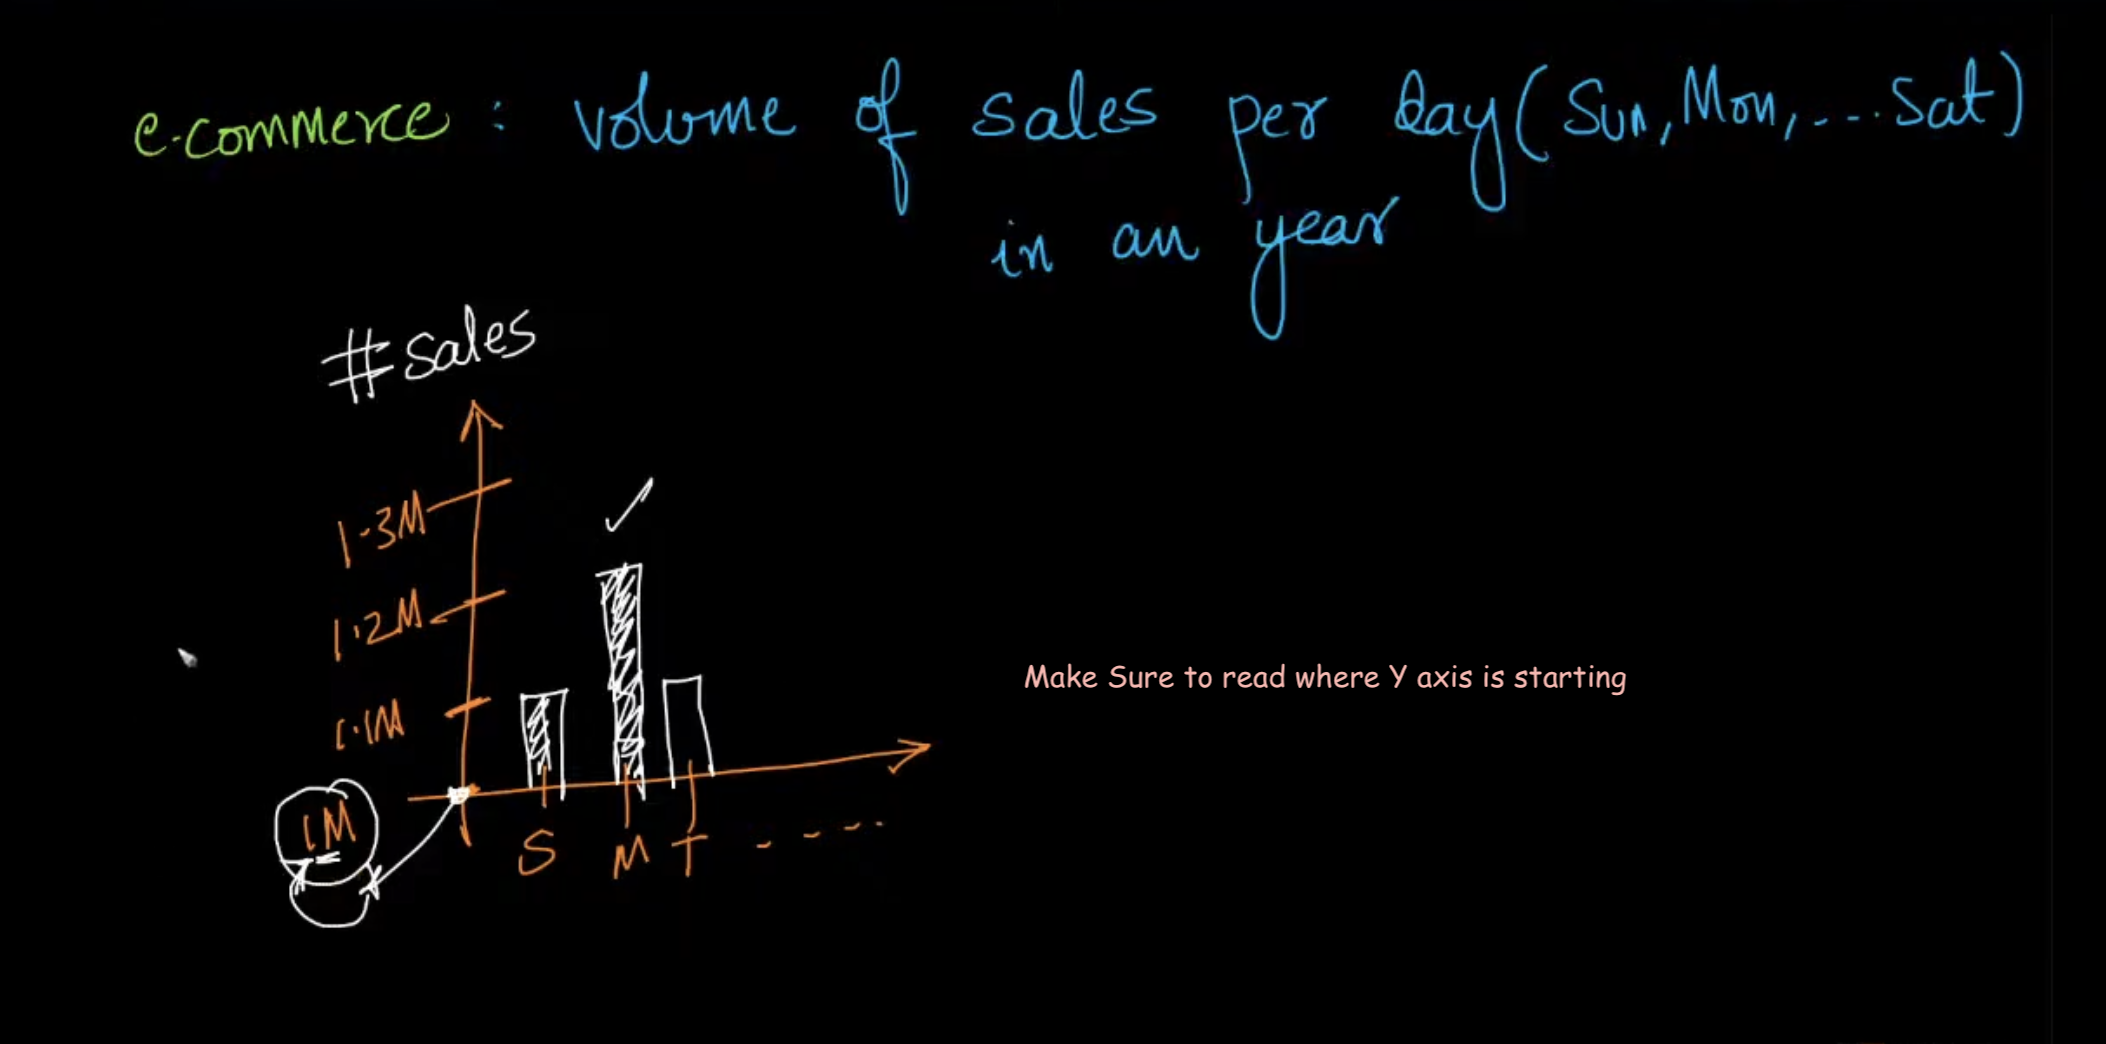 e-commerce : volume of sales per day (Sun, Mon, ... Sat)
in an year
#sales
1.3M
1.2M
1.1M
Make Sure to read where Y axis is starting
1M
S M T - - - -